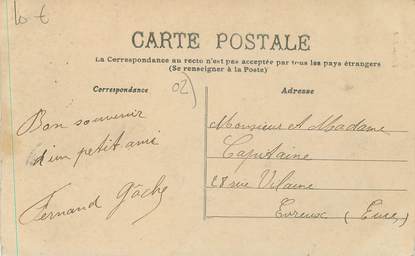 10 €
CARTE POSTALE
La Correspondance au recto n'est pas acceptée par tous les pays étrangers
(Se renseigner à la Poste)
Correspondance
02)
Adresse
Bon souvenir
d'un petit ami
Fernand Gâche
Monsieur et Madame
Capitaine
28 rue Vilaine
Evreux (Eure)